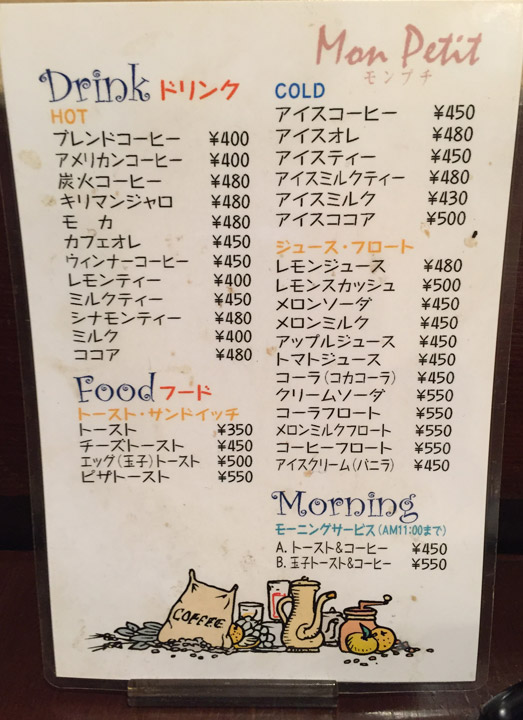 Mon Petit
モンプチ
Drink ドリンク
HOT
ブレンドコーヒー ¥400
アメリカンコーヒー ¥400
炭火コーヒー ¥480
キリマンジャロ ¥480
モカ ¥480
カフェオレ ¥450
ウィンナーコーヒー ¥450
レモンティー ¥400
ミルクティー ¥450
シナモンティー ¥480
ミルク ¥400
ココア ¥480
Food フード
トースト・サンドイッチ
トースト ¥350
チーズトースト ¥450
エッグ(玉子)トースト ¥500
ピザトースト ¥550
COLD
アイスコーヒー ¥450
アイスオレ ¥480
アイスティー ¥450
アイスミルクティー ¥480
アイスミルク ¥430
アイスココア ¥500
ジュース・フロート
レモンジュース ¥480
レモンスカッシュ ¥500
メロンソーダ ¥450
メロンミルク ¥450
アップルジュース ¥450
トマトジュース ¥450
コーラ(コカコーラ) ¥450
クリームソーダ ¥550
コーラフロート ¥550
メロンミルクフロート ¥550
コーヒーフロート ¥550
アイスクリーム(バニラ) ¥450
Morning
モーニングサービス(AM11:00まで)
A. トースト&コーヒー ¥450
B. 玉子トースト&コーヒー ¥550
COFFEE